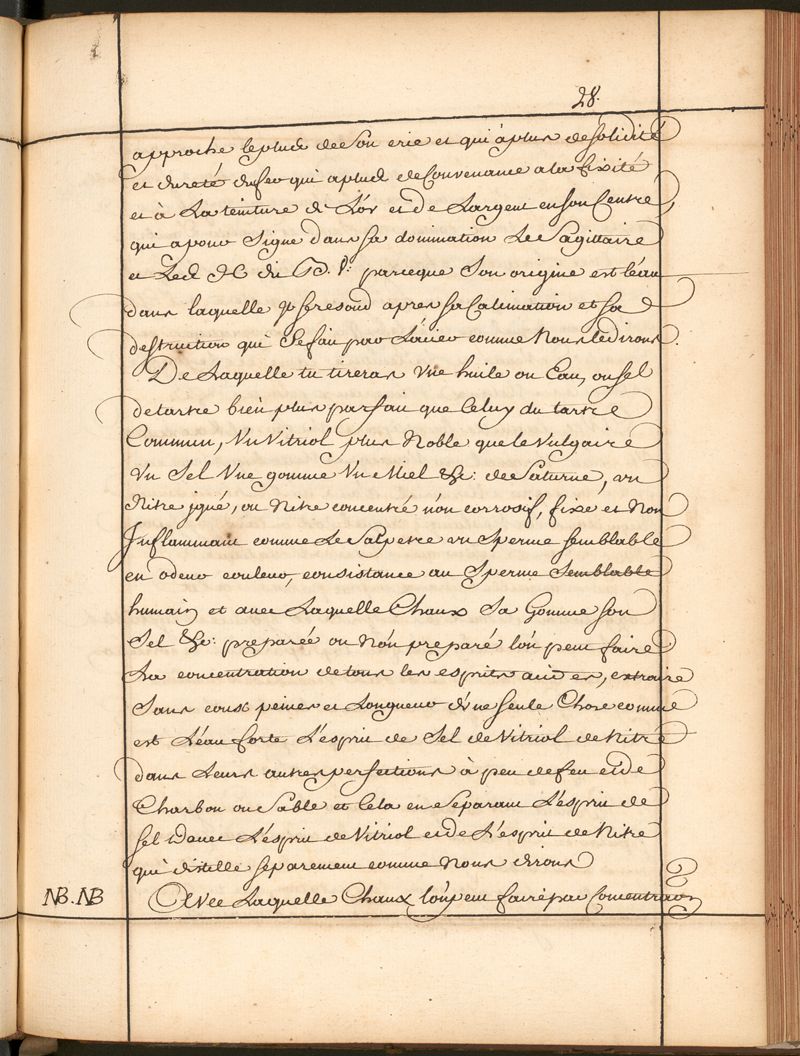 28.
approche le plus de son erie et qui a plus de solidité
et dureté du feu qui a plus de Convenance a la fixité
et à La teinture de L'or et de Largent en son Centre,
qui a pour Signe dans sa domination Le Sagittaire
et Les parceque Son origine est l'eau
dans laquelle il se resoud apres sa Calcination et sa
destruction qui Se fait par L'acier comme Nous le dirons.
De Laquelle tu tireras Une huile ou Eau, ou sel
de tartre bien plus parfait que Celuy du tartre
Commun, Un Vitriol plus Noble que le Vulgaire
Un Sel Une gomme Un Miel &c: de Saturne, un
Nitre igné, ou Nitre concentré non corrosif, fixe et Non
Inflammant comme Le Salpetre un Sperme semblable
en odeur couleur, consistance au Sperme Semblable
humain et avec Laquelle Chaux Sa Gomme son
Sel &c: preparée ou Non preparé l'on peut faire
La concentration de tous les esprits acides, extraire
Sans cout peines et Longueur d'une seule Chose comme
est L'eau forte L'esprit de Sel de Vitriol de Nitre
dans Leurs autres perfections à peu de feu et de
Charbon ou Sable et Cela en Separant L'esprit de
sel d'avec L'esprit de Vitriol et de L'esprit de Nitre
qui distille separement comme Nous dirons
NB. NB Avec Laquelle Chaux l'on peut faire par Concentration